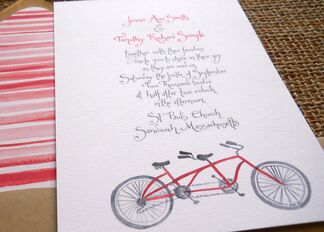 Jenna Ann Smith
&
Timothy Robert Sample
together with their families
invite you to share in their joy
as they are wed on
Saturday the tenth of September
Two Thousand Twelve
at half after two o'clock
in the afternoon
St. Pauls Church
Savannah, Massachusetts